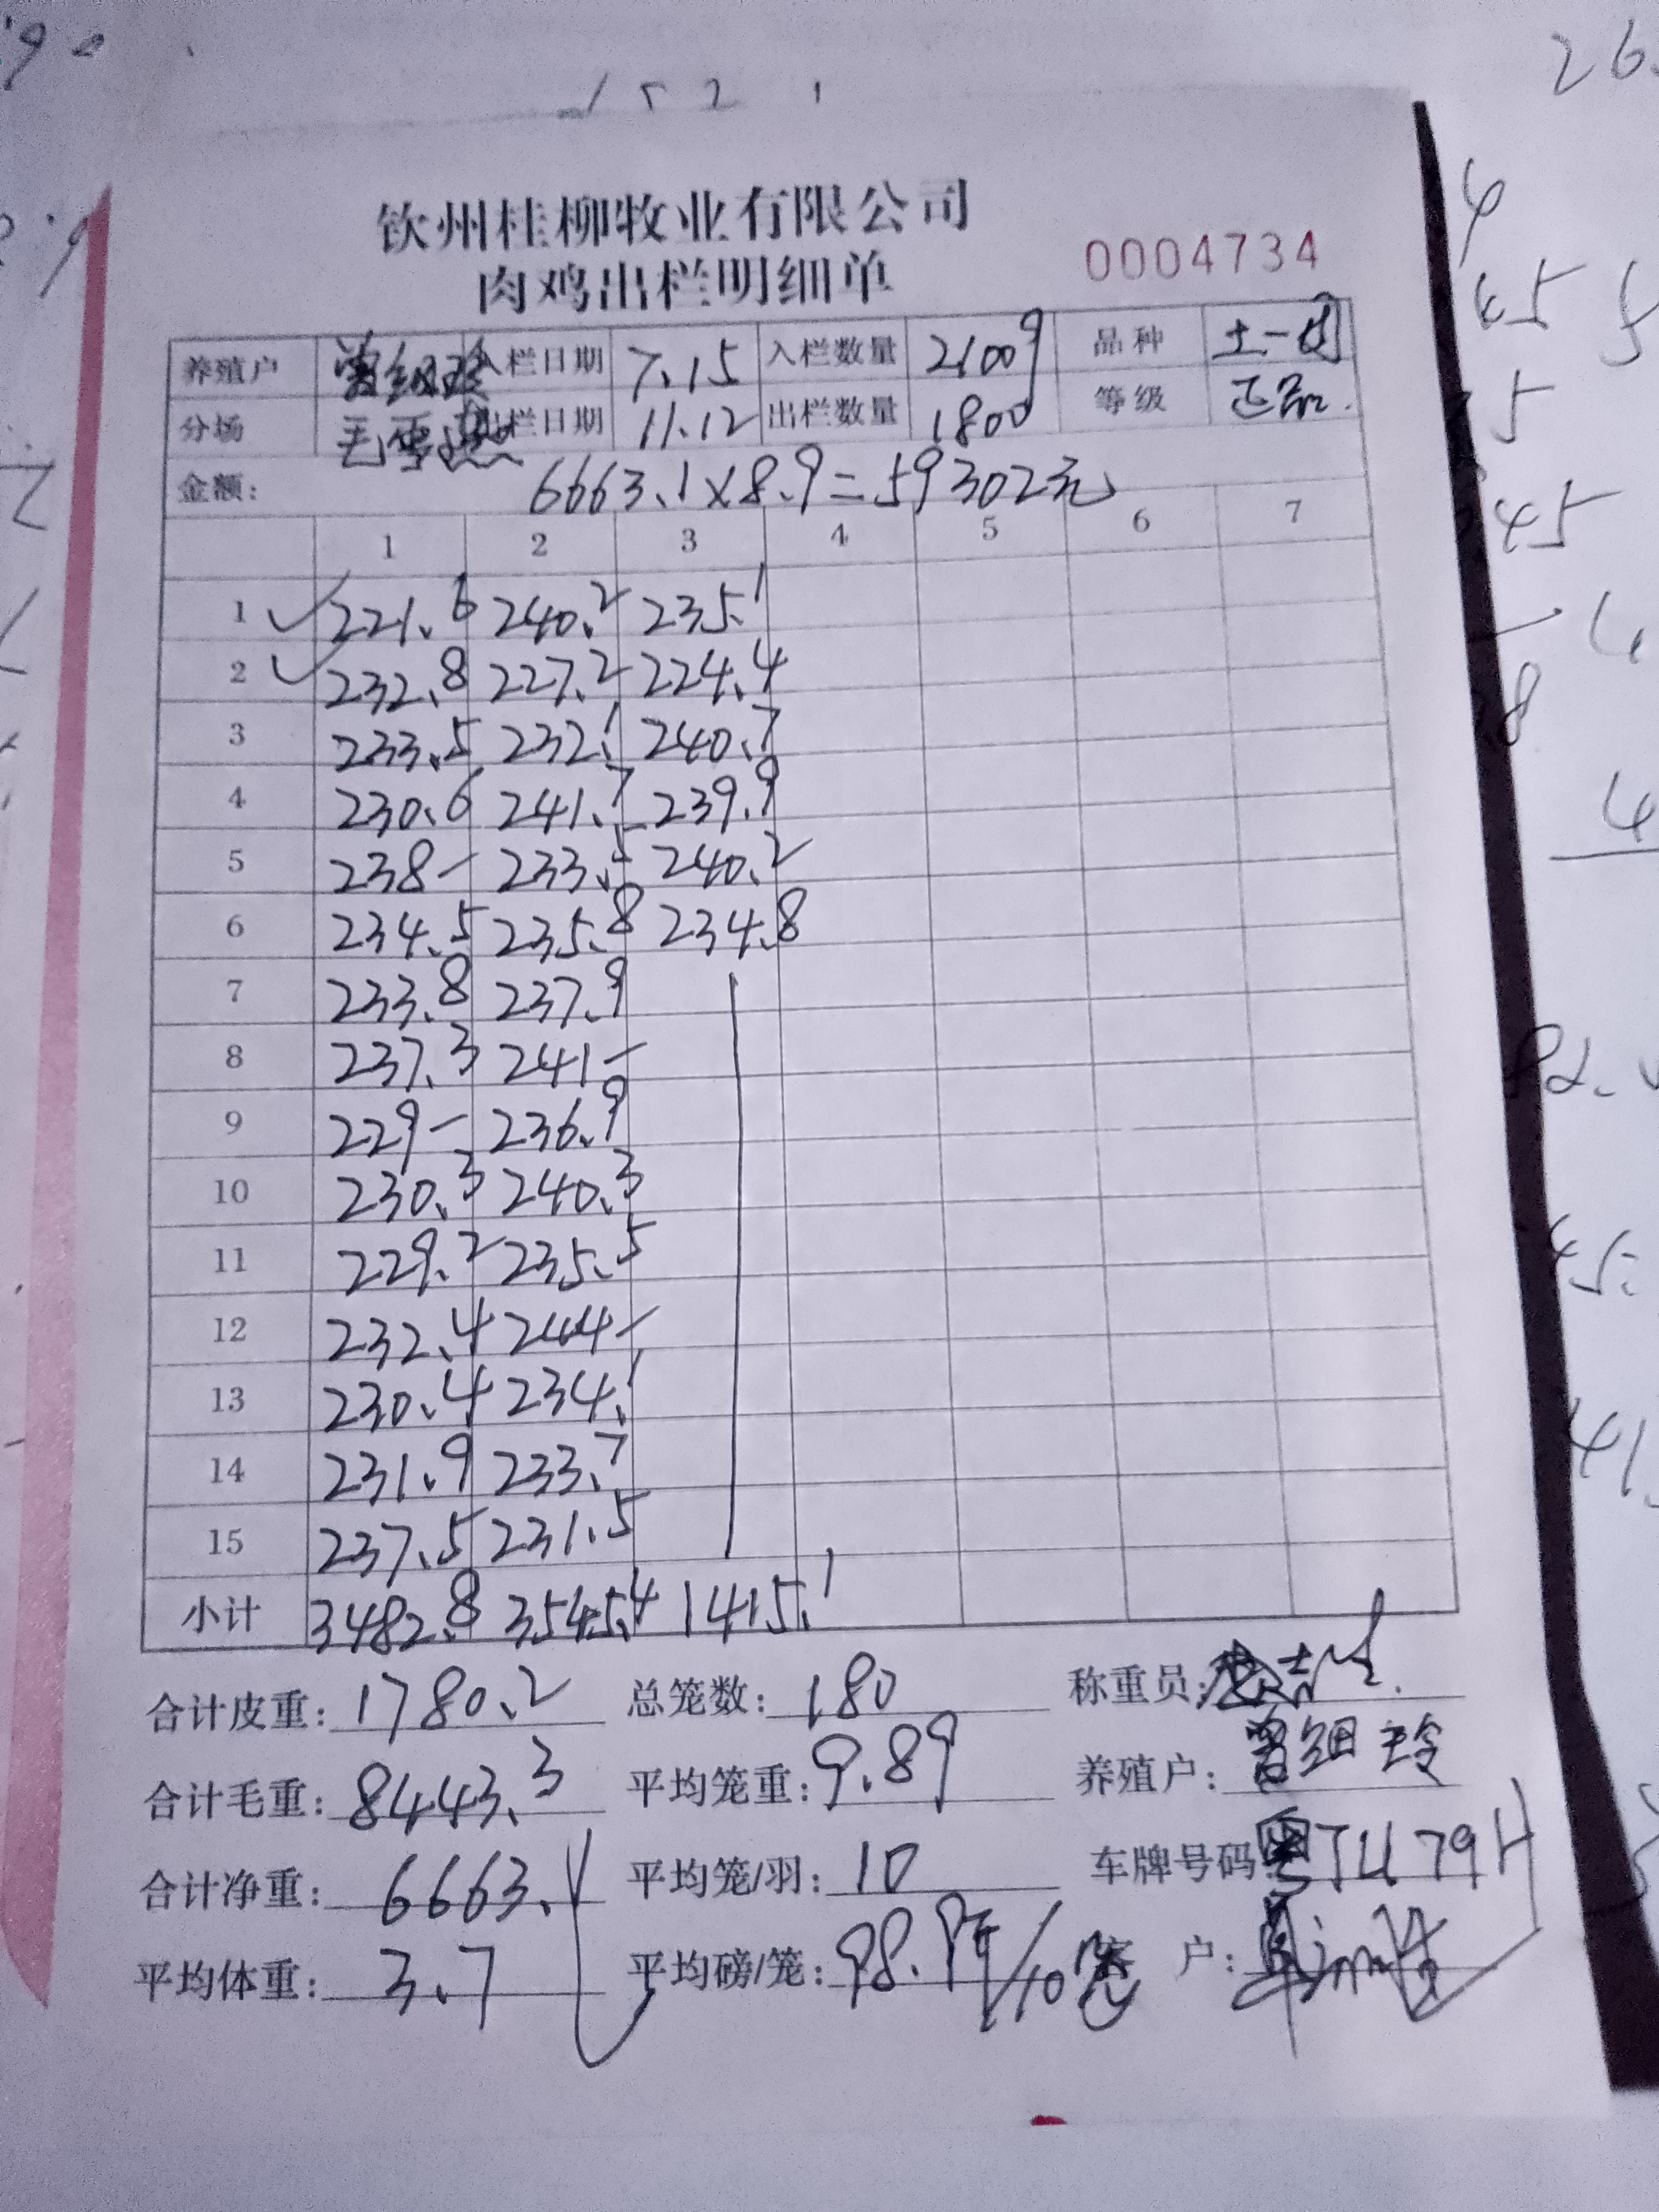 钦州桂柳牧业有限公司
肉鸡出栏明细单
0004734
养殖户 曾细玲 入栏日期 7.15 入栏数量 2100 品种 土一
分场 出栏日期 11.12 出栏数量 1800 等级 正品.
金额: 6663.1×8.9=59302元
1 2 3 4 5 6 7
1 221.6 240.2 235.1
2 232.8 227.2 224.4
3 233.5 232.1 240.7
4 230.6 241.7 239.9
5 238- 233.5 240.2
6 234.5 235.8 234.8
7 233.8 237.9
8 237.3 241-
9 229- 236.9
10 230.3 240.3
11 229.2 235.5
12 232.4 244-
13 230.4 234.1
14 231.9 233.7
15 237.5 231.5
小计 3482.8 3545.4 1415.1
合计皮重: 1780.2 总笼数: 180 称重员:
合计毛重: 8443.3 平均笼重: 9.89 养殖户: 曾细玲
合计净重: 6663.1 平均笼/羽: 10 车牌号码: 粤JU79H
平均体重: 3.7 平均磅/笼: 98.9斤/10笼 客户: